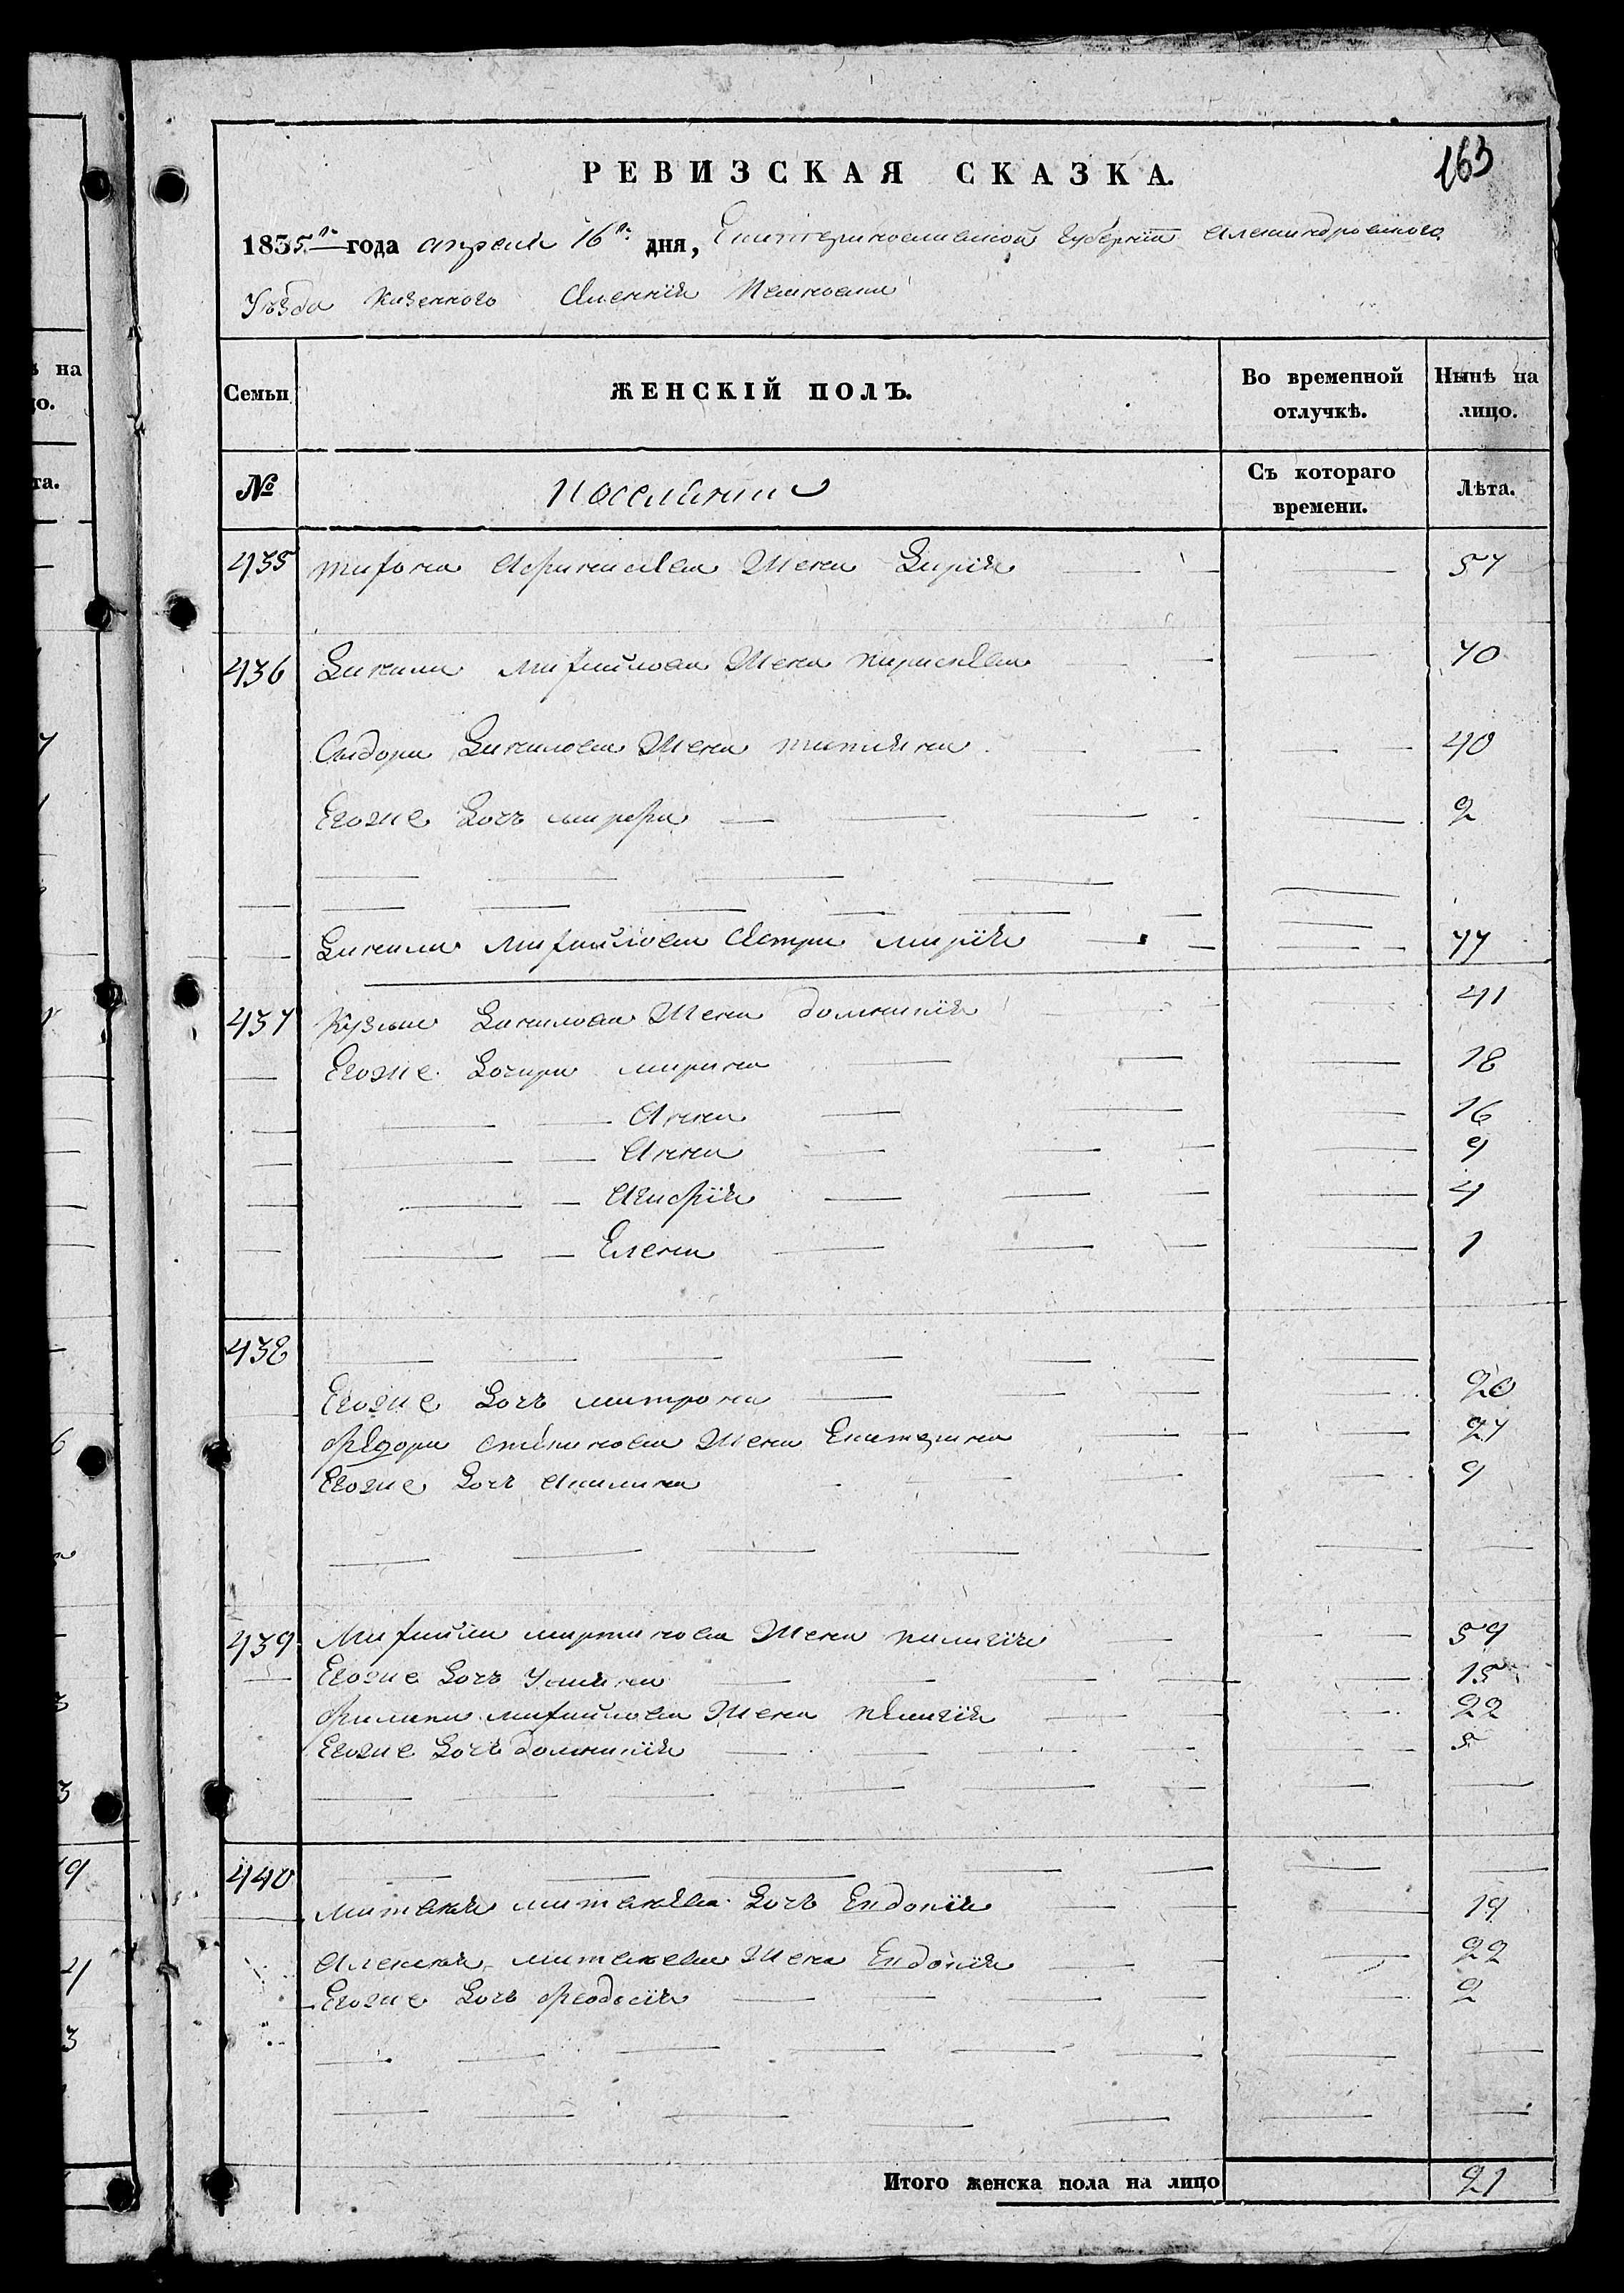 163
РЕВИЗСКАЯ СКАЗКА.
1835го года апреля 16го дня, Екатеринославской губернии Александровского
Уезда Казенного Имения
Семьи ЖЕНСКІЙ ПОЛЪ. Во временной отлучкѣ. Нынѣ на лицо.
№ Поселяни Съ котораго времени. Лѣта.
435 Тихона Афанасьева Жена Дарія 57
436 Данила Михайлова Жена Параскева 70
Сидора Данилова Жена Татияна 40
Егоже Дочь Марфа 2
Данила Михайлова Сестра Марія 77
437 Кузмы Данилова Жена Домникія 41
Егоже Дочери Марина 18
Анна 16
Анна 9
Агафія 4
Елена 1
438
Егоже Дочь Матрона 20
Федора Степанова Жена Екатерина 27
Егоже Дочь Акилина 9
439 Михайла Мартинова Жена Палагія 59
Егоже Дочь Улияна 15
Филипа Михайлова Жена Пелагія 22
Егоже Дочь Домникія 5
440
Матвея Матвеева Дочь Евдокія 19
Алексея Матвеева Жена Евдокія 22
Егоже Дочь Феодосія 2
Итого женска пола на лицо 21